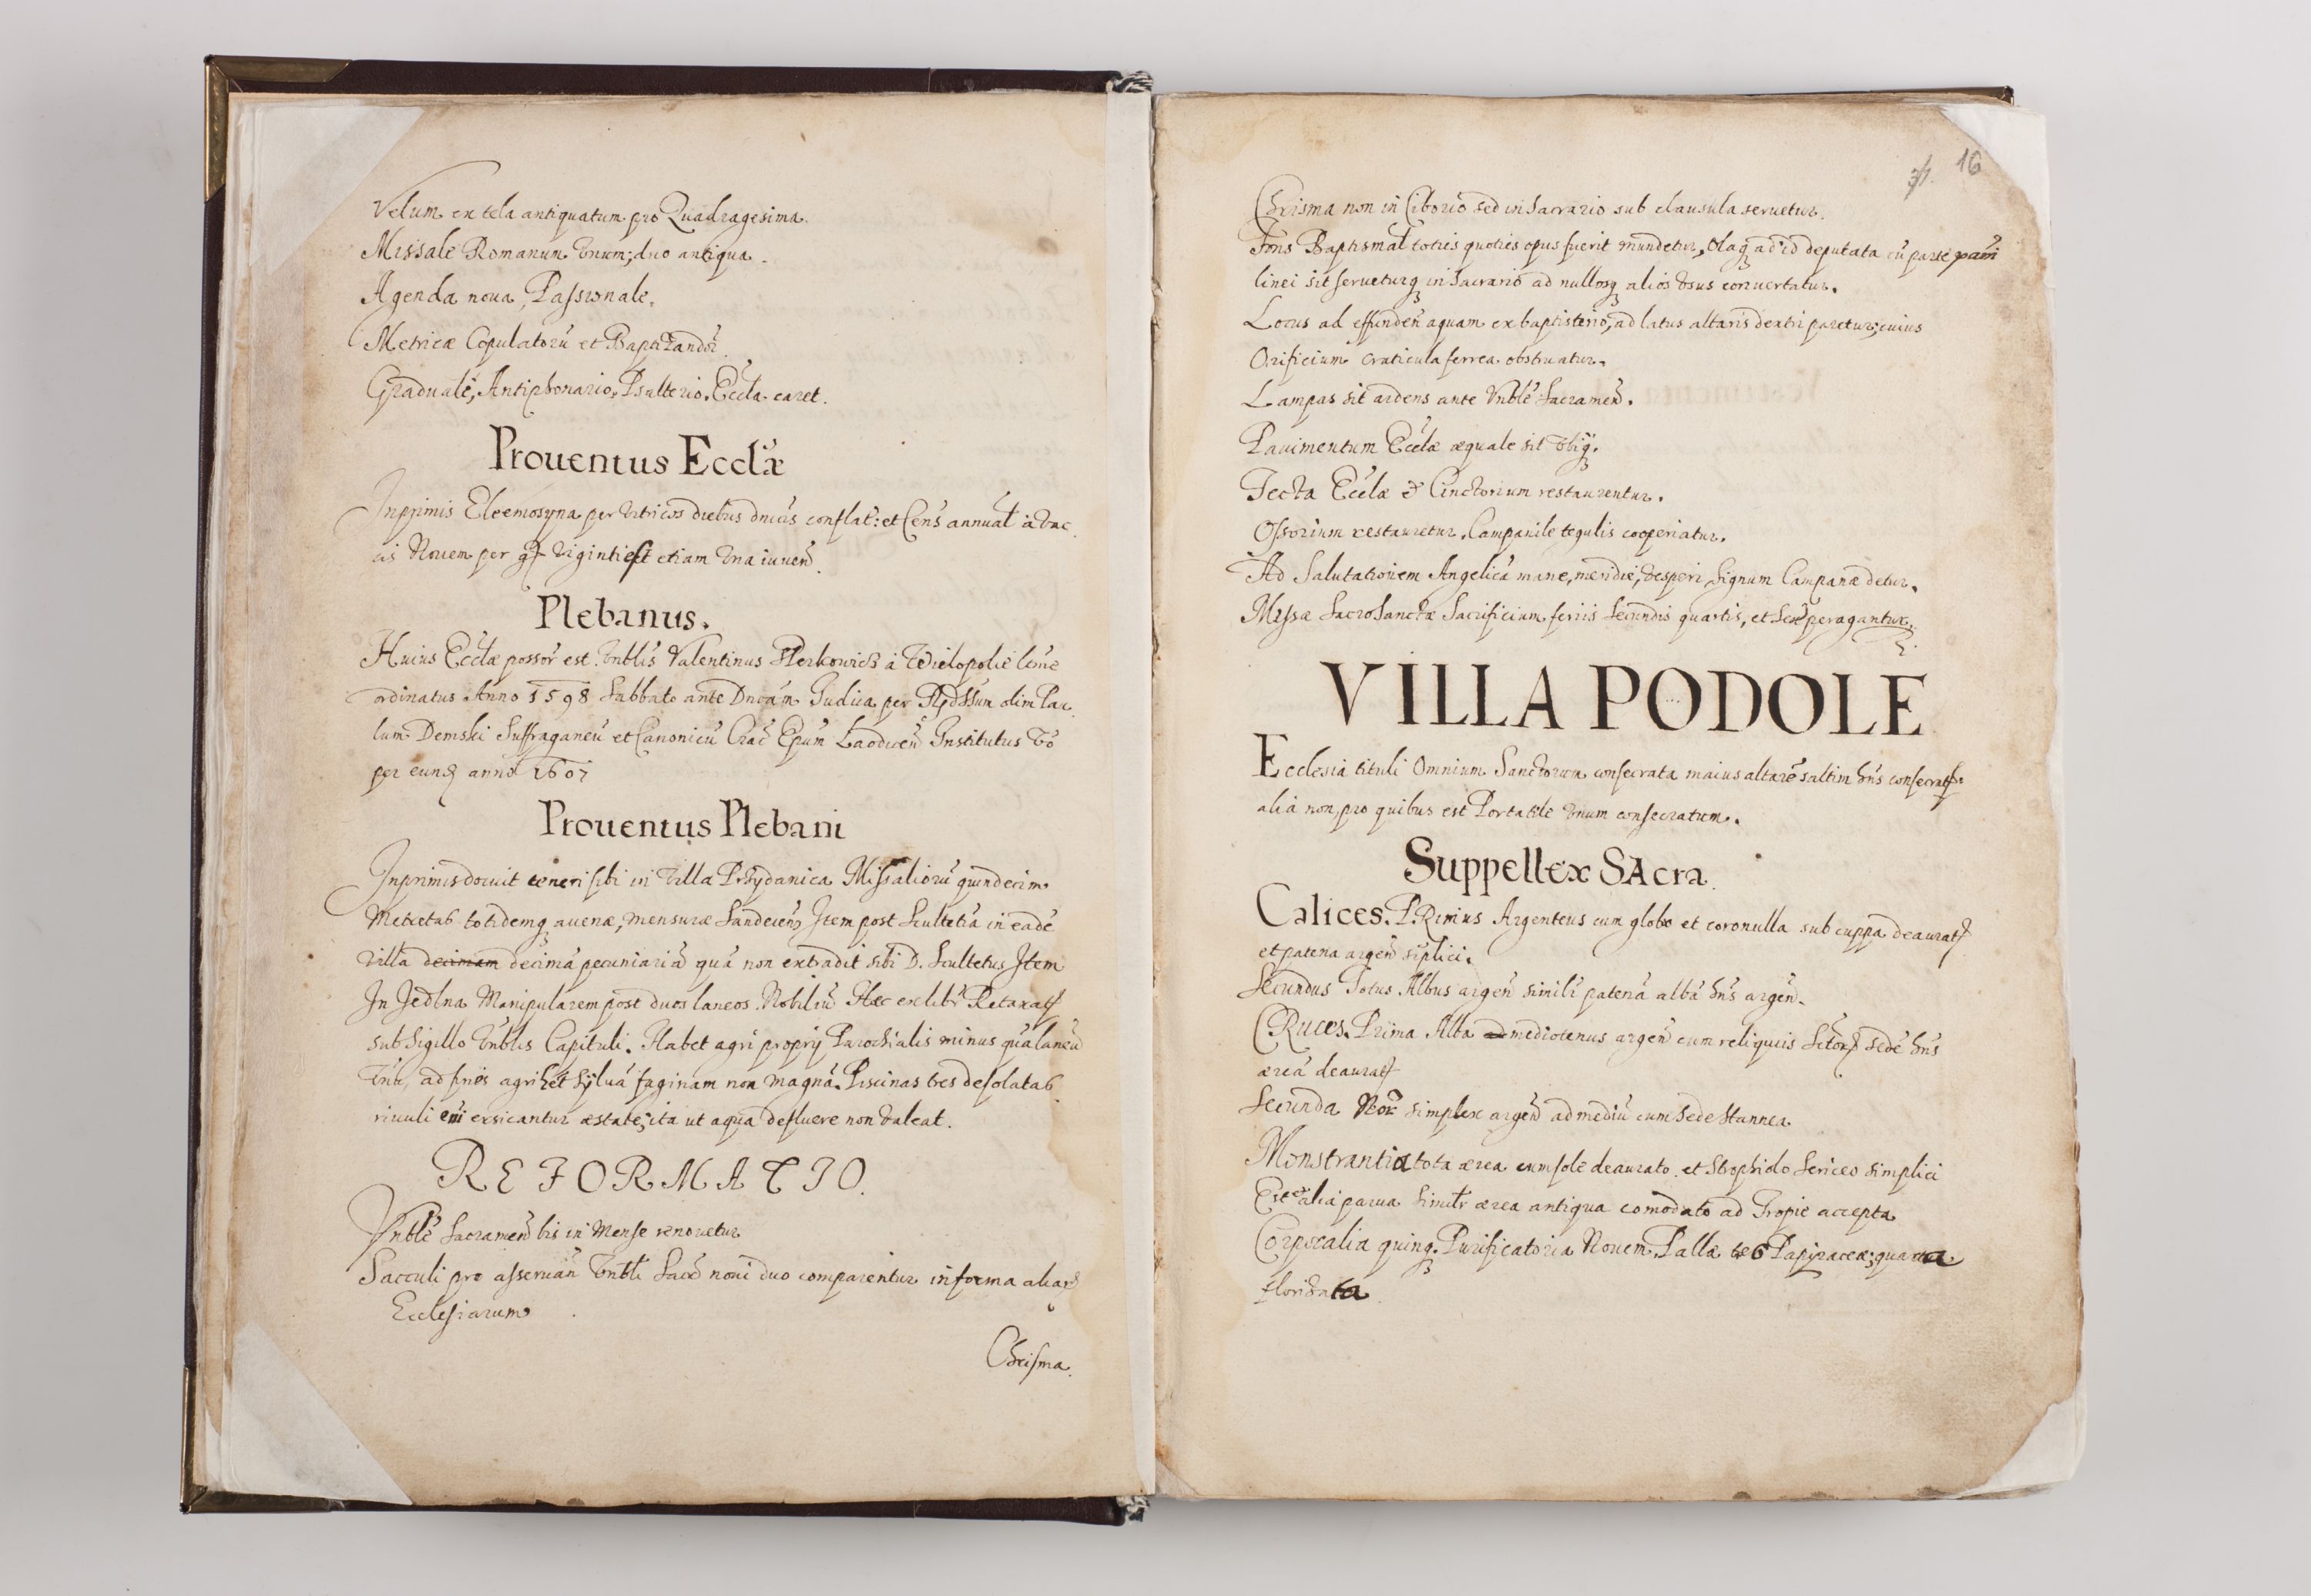 Velum ex tela antiquatum pro Quadragesima.
Missale Romanum vnum; duo antiqua.
Agenda noua, Passionale.
Metricæ Copulatorũ et Baptizandor̃
Graduale, Antiphonario, Psalterio, Eccl̃a caret.
Prouentus Eccl̃æ
Inprimis Eleemosyna per vitricos diebus dnicis conflat: et Cens annual̃ à vac
cis Nouem per gr viginti est etiam vna iuuen̄
Plebanus.
Huius Eccl̃æ possor est. Vnblis Valentinus à Wielopolie
ordinatus Anno 1598 Sabbato ante Dnicam Iudica per olim Pau
lum Demski Suffraganeũ et Canonicũ Crac̃ Epum Laodicen̄ Institutus vo
per eund anno 1607
Prouentus Plebani
Inprimis docuit teneri sibi in villa Przydanica Missaliorũ quindecim
Metretas totidemq auenæ, mensuræ Sandecen̄ Item post Scultetiã in eadẽ
villa decimam decimã pecuniariã quã non extradit sibi D. Scultetus Item
In Jedlna Manipularem post duos laneos Nobiliũ Hæc ex libr̃ Retaxat
sub sigillo Vnblis Capituli. Habet agri proprij Parochialis minus quã laneũ
vnũ, ad fines agri het syluã faginam non magnã. Piscinas tres desolatas
riuuli exsicantur æstate, ita ut aqua defluere non valeat.
REFORMATIO.
Vnblẽ Sacramen̄ bis in Mense renouetur
Sacculi pro asseruan̄ Vnbli Sacr̃ noui duo comparentur in forma aliar
Ecclesiarum
Chrisma.
31. 16
Chrisma non in Ciborio sed in Sacrario sub clausula seruetur.
Fons Baptismal̃ toties quoties opus fuerit mundetur, Olaq ad id deputata cũ parte pãni
linei sit serueturq in Sacrario ad nullosq alios vsus conuertatur.
Locus ad effunden̄ aquam ex baptisterio, ad latus altaris dextri paretur, cuius
Orificium craticula ferrea obstruatur.
Lampas sit ardens ante Vnblẽ Sacramen̄.
Pauimentum Eccl̃æ æquale sit vbiq.
Tecta Eccl̃æ & Cinctorium restaurentur.
Ossorium restauretur. Campanile tegulis cooperiatur.
Ad Salutationem Angelicã mane, meridie, vesperi, signum Campanæ detur.
Missæ Sacrosanctæ Sacrificium feriis secundis quartis, et Sex peragantur.
VILLA PODOLE
Ecclesia tituli Omnium Sanctorum consecrata maius altare saltim hñs consecrat
alia non, pro quibus est Portatile vnum consecratum.
Suppellex SAcra.
Calices. PRimus Argenteus cum globo et coronulla sub cuppa deaurat
et patena argen̄ siplici.
Secundus Totus Albus argen̄ simili patenã albã hñs argen̄.
CRuces. Prima Alta mediotenus argen̄ cum reliquiis Sctor sede hñs
æreã deaurat
Secunda simplex argen̄ ad mediũ cum sede stannea
Monstrantia tota ærea cum sole deaurato et strophiolo sericeo simplici
Est et alia parua similr ærea antiqua comodato ad Tropie accepta
Corporalia quinq. Purificatoria Nouem. Pallæ tres Papiraceæ; quarta
floridata